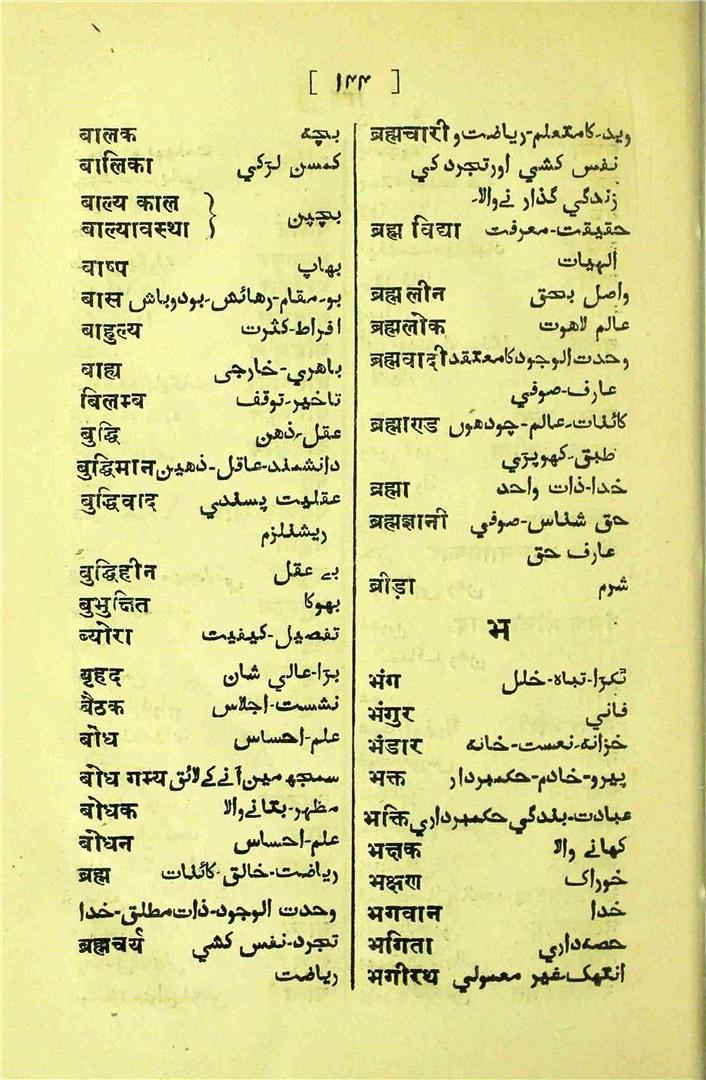 [ ۱۴۴ ]
बालक بچہ
बालिका کمسن لڑکی
बाल्य काल
बाल्यावस्था } بچپن
बाष्प بھاپ
बास بو-مقام-رهائش-بودوباش
बाहुल्य افراط-کثرت
बाह्य باهري-خارجی
बिलम्ब تاخیر-توقف
बुद्धि عقل-ذهن
बुद्धिमान دانشمند-عاقل-ذهین
बुद्धिवाद عقلیت پسندي
ریشنلزم
बुद्धिहीन بے عقل
बुभुक्षित بھوکا
ब्योरा تفصیل-کیفیت
बृहद بڑا-عالي شان
बैठक نشست-اجلاس
बोध علم-احساس
बोध गम्य سمجھ مین آنے کے لائق
बोधक مظہر-بتانے والا
बोधन علم-احساس
ब्रह्म ریاضت-خالق-کائنات
وحدت الوجود-ذات مطلق-خدا
ब्रह्मचर्य تجرد-نفس کشي
ریاضت
ब्रह्मचारी وید-کا متعلم-ریاضت و
نفس کشي اور تجرد کي
زندگي گذار نے والا-
ब्रह्म विद्या حقیقت-معرفت
الہیات
ब्रह्मलीन واصل بحق
ब्रह्मलोक عالم لاهوت
ब्रह्मवादी وحدت الوجود کا معتقد
عارف-صوفي
ब्रह्माण्ड کائنات-عالم-چودهوں
طبق-کھوپڑي
ब्रह्मा خدا-ذات واحد
ब्रह्मज्ञानी حق شناس-صوفي
عارف حق
ब्रीड़ा شرم
भ
भंग ٹکڑا-تباہ-خلل
भंगुर فاني
भंडार خزانہ-نعمت-خانہ
भक्त پیرو-خادم-حکمبردار
भक्ति عبادت-بندگي حکمبرداري
भक्षक کھانے والا
भक्षण خوراک
भगवान خدا
भगिता حصہ داري
भगीरथ انتھک-غیر معمولي